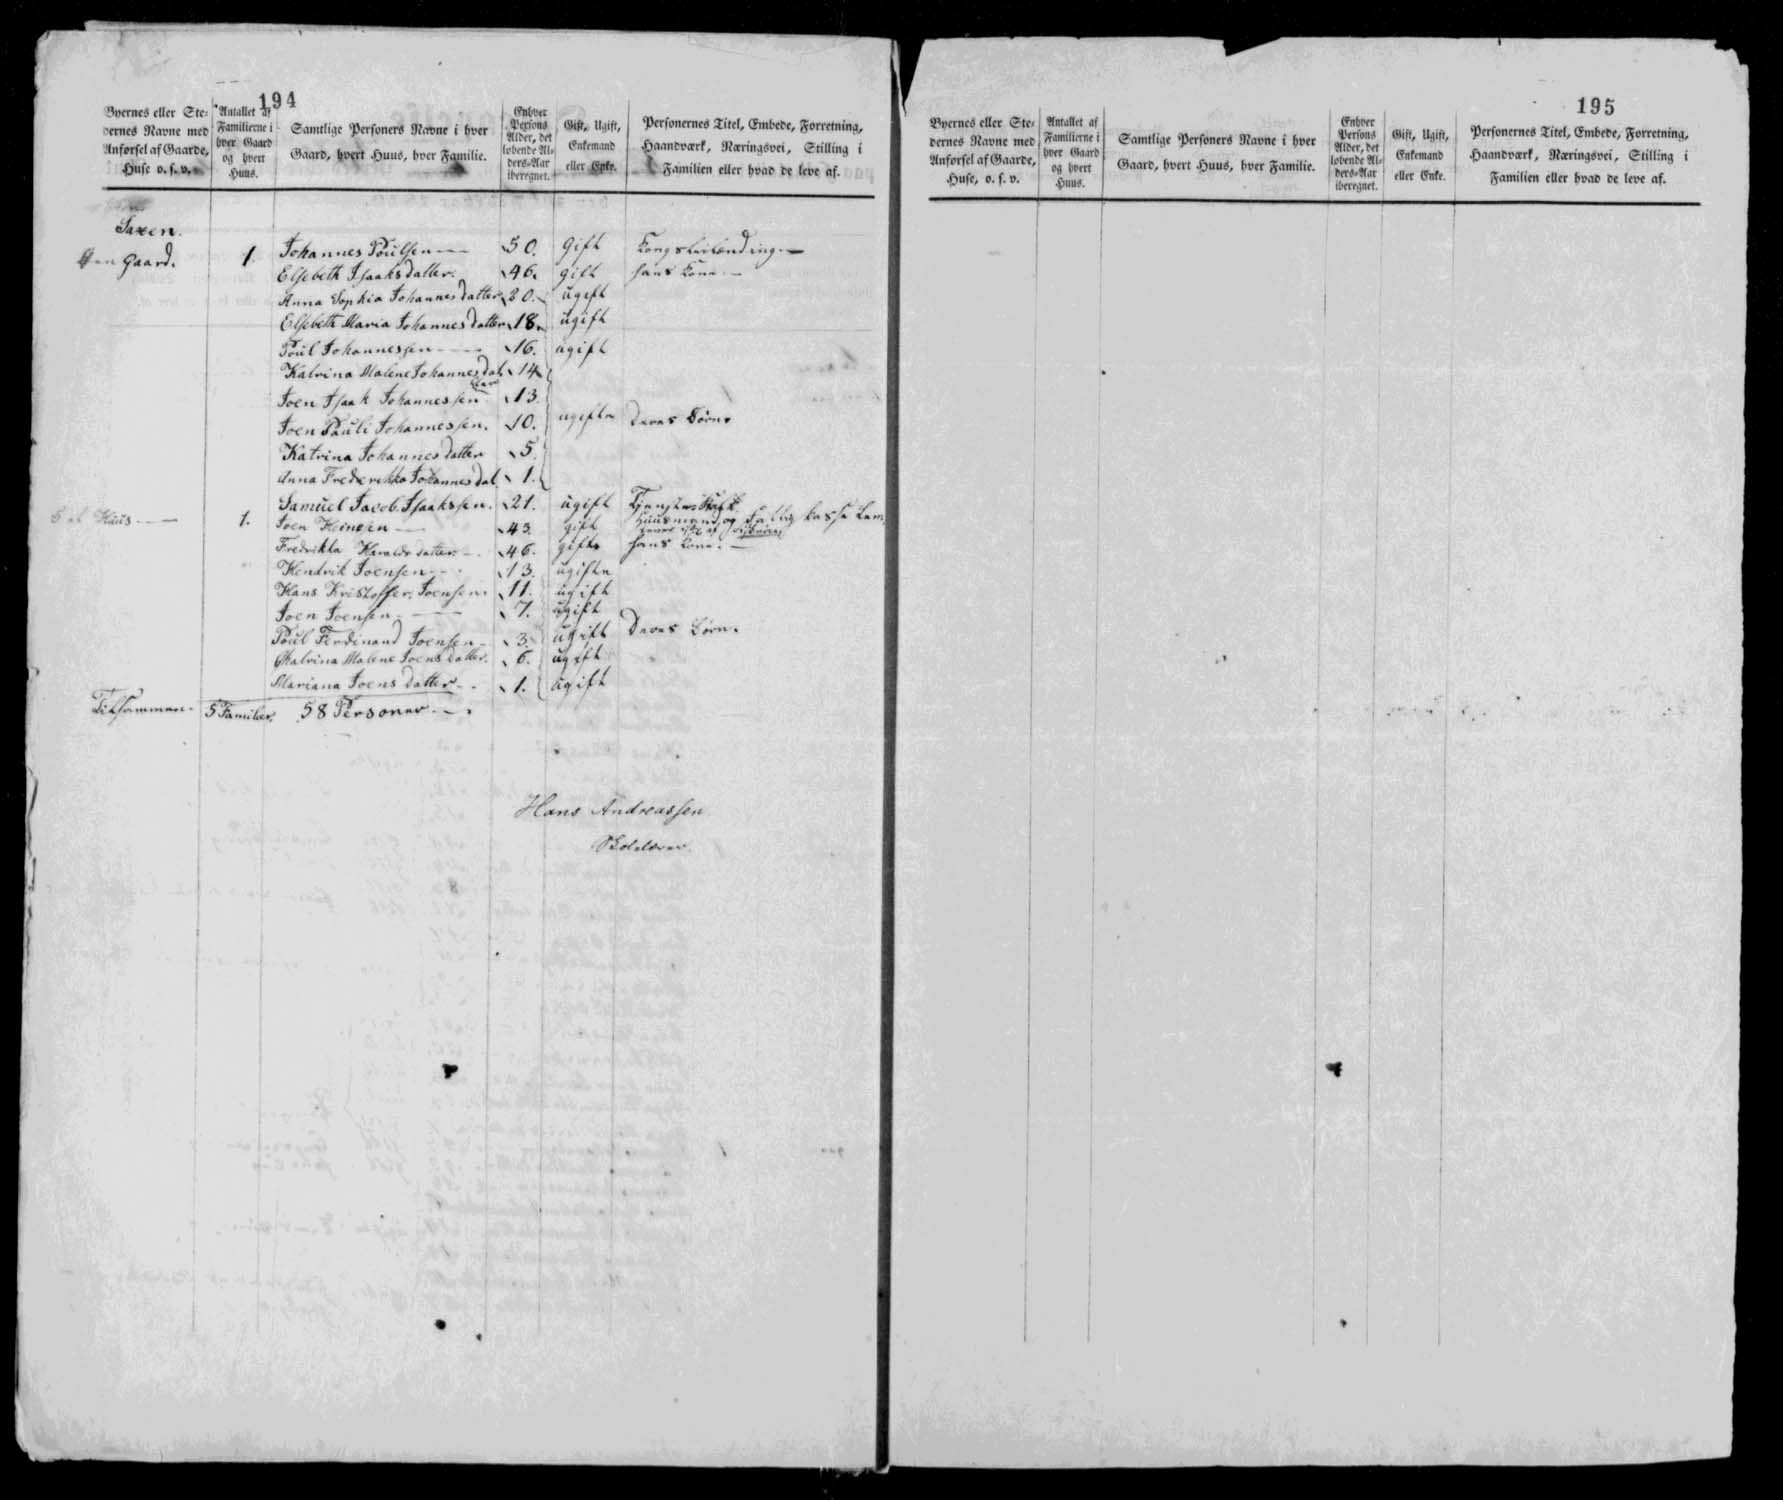 194
Byernes eller Ste-
dernes Navne med
Anførsel af Gaarde,
Huse o. s. v.
Antallet af
Familierne i
hver Gaard
og hvert
Huus.
Samtlige Personers Navne i hver
Gaard, hvert Huus, hver Familie.
Enhver
Persons
Alder, det
løbende Al-
ders-Aar
iberegnet.
Gift, Ugift,
Enkemand
eller Enke.
Personernes Titel, Embede, Forretning,
Haandværk, Næringsvei, Stilling i
Familien eller hvad de leve af.
Saxen.
Gaard. 1. Johannes Poulsen 50. gift
Elsebeth Isaaksdatter. 46. gift hans Kone.
Anna Sophia Johannesdatter 20. ugift
Elsebeth Maria Johannesdatter 18. ugift
Poul Johannessen 16. ugift
Katrina Malene Johannesdat. 14
Joen Isaak Johannessen 13.
Joen Pauli Johannessen. 10. ugifte Deres Børn.
Katrina Johannesdatter 5.
Anna Frederikka Johannesdat. 1.
Samuel Jacob Isaakssen. 21. ugift
Huus 1. Joen Heinesen 43. gift Huusmand og
Fredrikka Haraldsdatter. 46. gift hans Kone.
Hendrik Joensen 13. ugift
Hans Kristoffer Joensen. 11. ugift
Joen Joensen 7. ugift
Poul Ferdinand Joensen 3. ugift Deres Børn.
Katrina Malene Joensdatter. 6. ugift
Mariana Joensdatter 1. ugift
Tilsammen. 5 Familier. 58 Personer.
Hans Andreassen
Skolelærer.
195
Byernes eller Ste-
dernes Navne med
Anførsel af Gaarde,
Huse, o. s. v.
Antallet af
Familierne i
hver Gaard
og hvert
Huus.
Samtlige Personers Navne i hver
Gaard, hvert Huus, hver Familie.
Enhver
Persons
Alder, det
løbende Al-
ders-Aar
iberegnet.
Gift, Ugift,
Enkemand
eller Enke.
Personernes Titel, Embede, Forretning,
Haandværk, Næringsvei, Stilling i
Familien eller hvad de leve af.